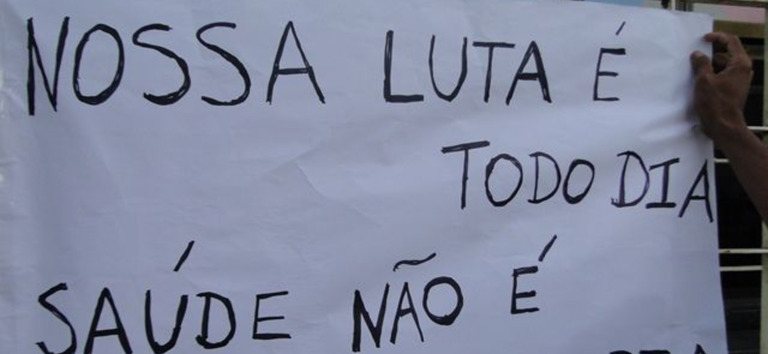 NOSSA LUTA É
TODO DIA
SAÚDE NÃO É